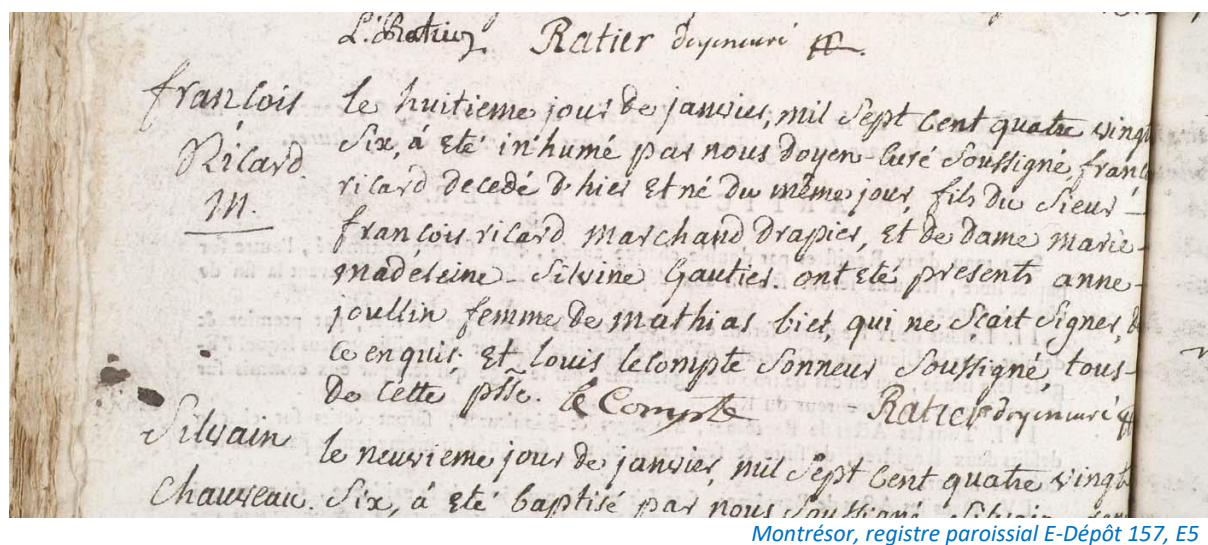 L. Ratier Ratier doyen curé
françois
Ricard
m.
le huitieme jour de janvier, mil sept cent quatre vingt
six, à eté inhumé par nous doyen-curé soussigné, franç
ricard decedé d'hier et né du même jour, fils du sieur
françois ricard marchand drapier, et de dame marie
madeleine Silvine Gautier. ont eté presents anne
joullin femme de mathias biet, qui ne sçait signer, de
ce enquis, et louis lecompte sonneur soussigné, tous
de cette psse. le Compte Ratier doyen curé
Silvain
Chauveau.
le neuvieme jour de janvier, mil sept cent quatre vingt
six, à eté baptisé par nous soussigné Silvain
Montrésor, registre paroissial E-Dépôt 157, E5